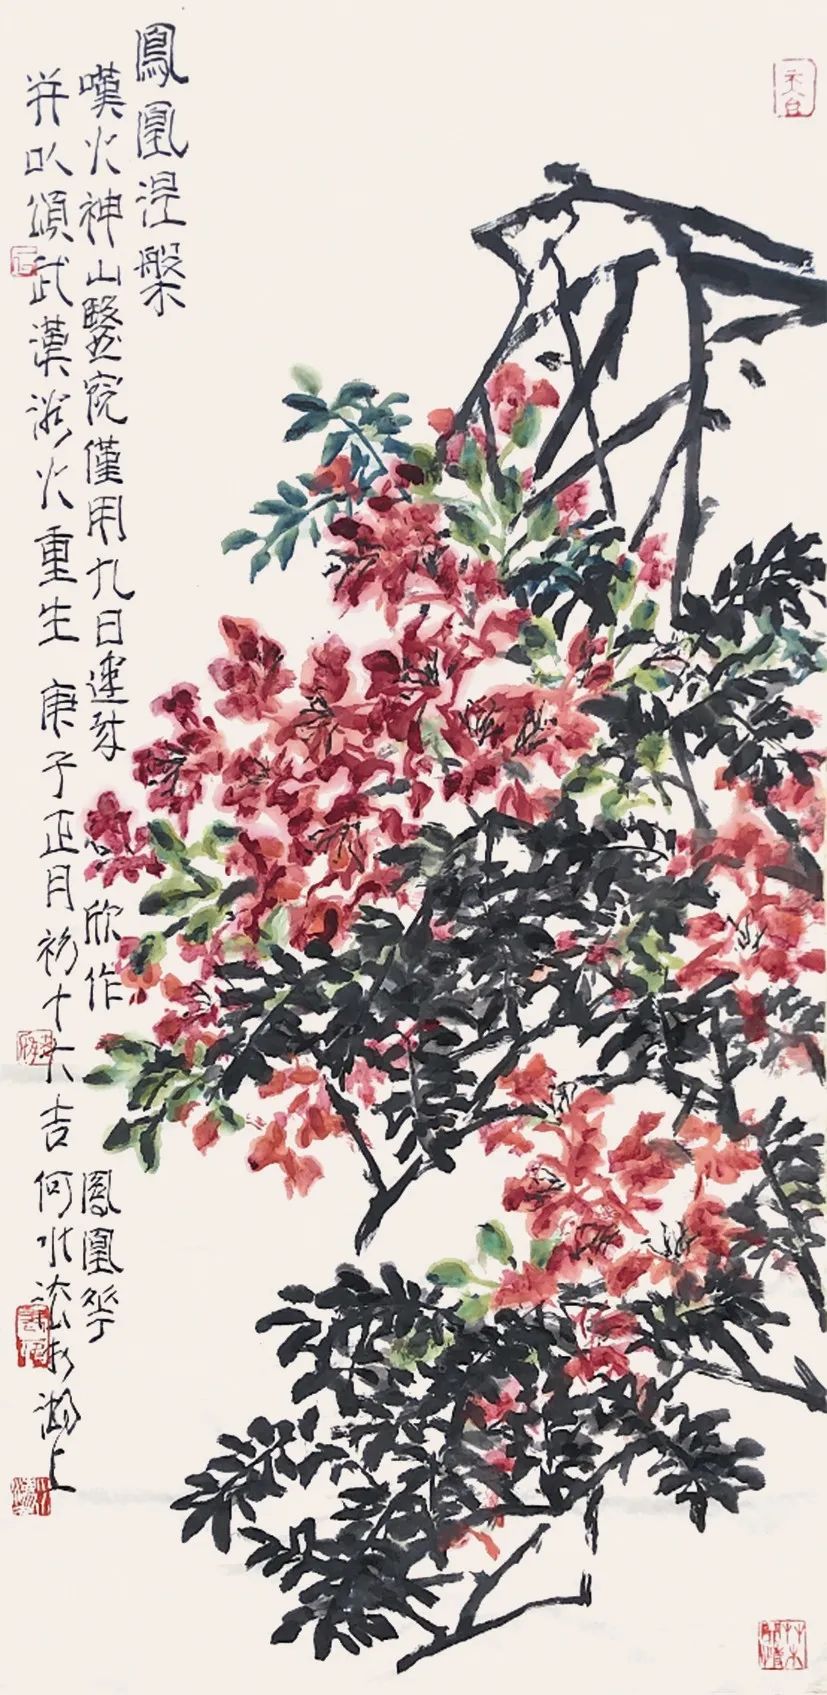 鳳凰涅槃
嘆火神山醫院僅用九日建成 欣作鳳凰花
并以頌武漢浴火重生 庚子正月初十大吉 何水法於湖上